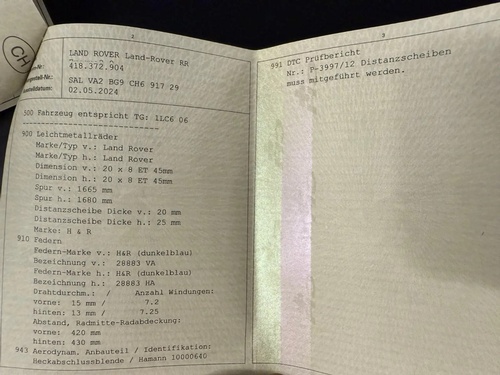 CH
2
LAND ROVER Land-Rover RR
418.372.904
SAL VA2 BG9 CH6 917 29
02.05.2024
500 Fahrzeug entspricht TG: 1LC6 06
900 Leichtmetallräder
Marke/Typ v.: Land Rover
Marke/Typ h.: Land Rover
Dimension v.: 20 x 8 ET 45mm
Dimension h.: 20 x 8 ET 45mm
Spur v.: 1665 mm
Spur h.: 1680 mm
Distanzscheibe Dicke v.: 20 mm
Distanzscheibe Dicke h.: 25 mm
Marke: H & R
910 Federn
Federn-Marke v.: H&R (dunkelblau)
Bezeichnung v.: 28883 VA
Federn-Marke h.: H&R (dunkelblau)
Bezeichnung h.: 28883 HA
Drahtdurchm.: / Anzahl Windungen:
vorne: 15 mm / 7.2
hinten: 13 mm / 7.25
Abstand, Radmitte-Radabdeckung:
vorne: 420 mm
hinten: 430 mm
943 Aerodynam. Anbauteil / Identifikation:
Heckabschlussblende / Hamann 10000640
3
991 DTC Prüfbericht
Nr.: P-3997/12 Distanzscheiben
muss mitgeführt werden.